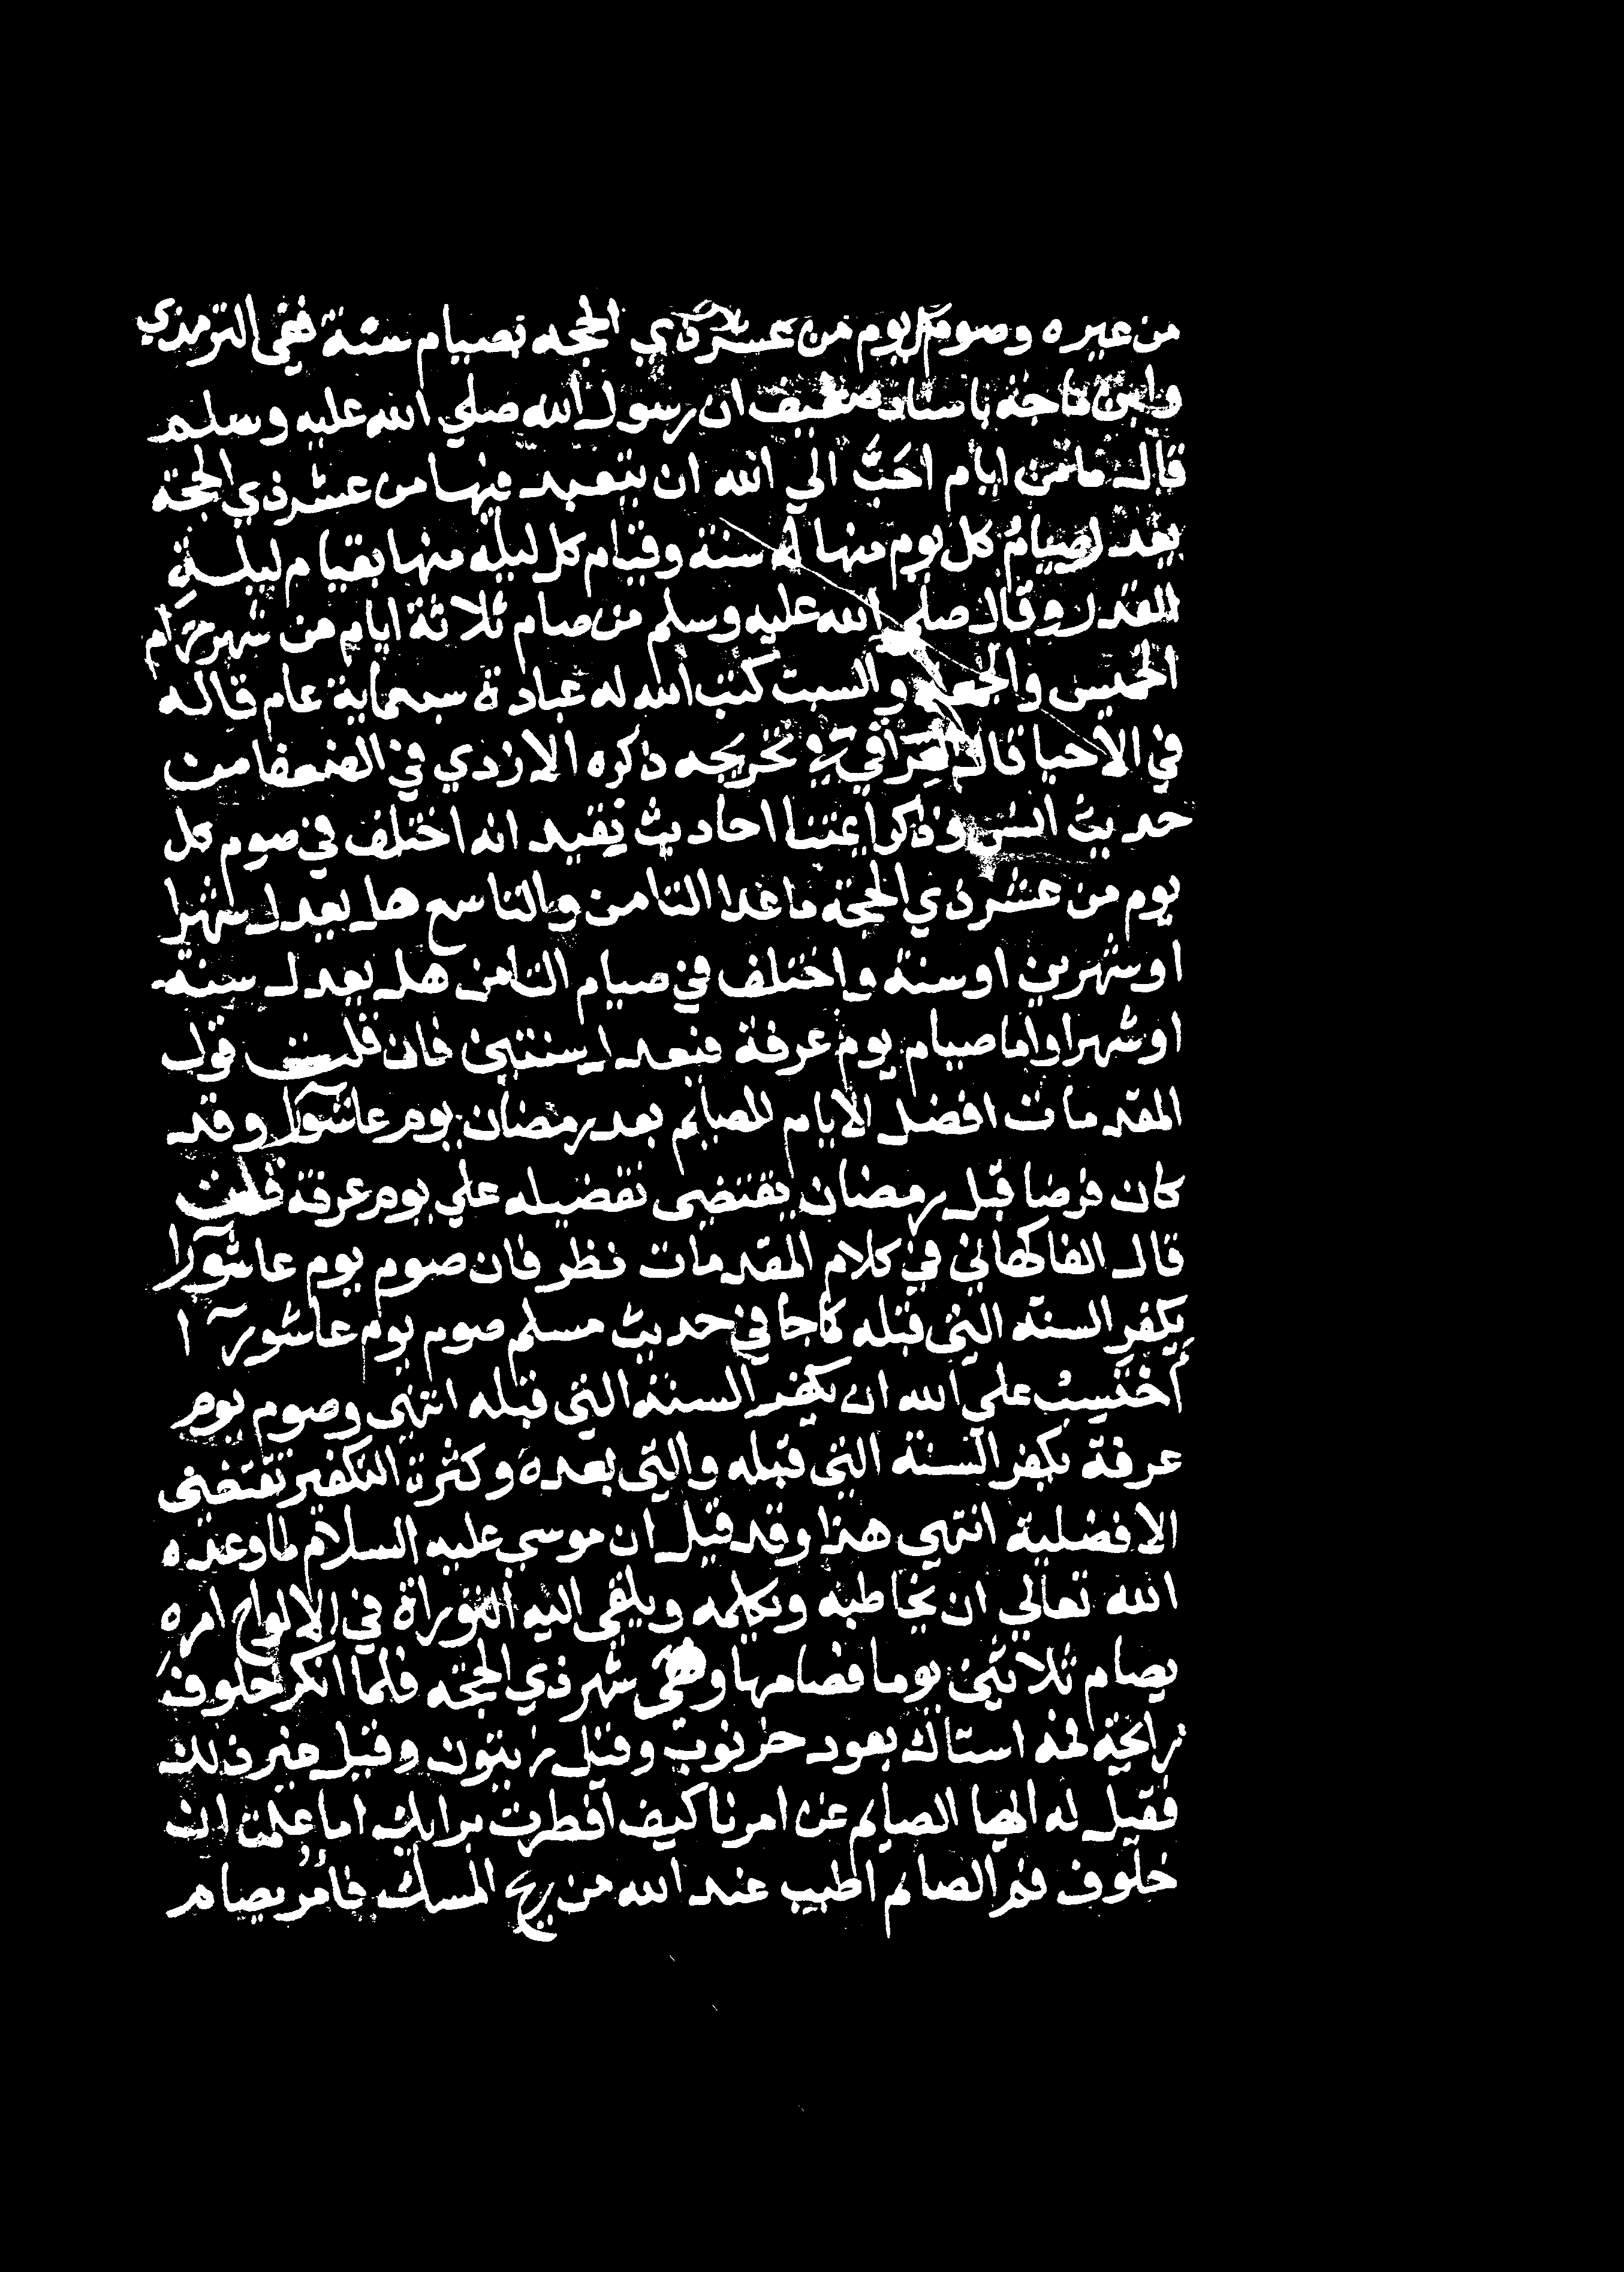 من غيره وصوم كل يوم من عشر ذي الحجه بصيام سنة ففي الترمذي
وابن ماجة باسناد ضعيف ان رسول الله صلي الله عليه وسلم
قال ما من ايام احَبُّ الي الله ان يتعبد فيها من عشر ذي الحجة
يعدل صيامُ كل يوم منها سنة وقيام كل ليلة منها بقيام ليلةِ
القدر وقال صلي الله عليه وسلم من صام ثلاثة ايام من شهر حرام
الخميس والجمعه والسبت كتب الله له عبادة سبعماية عام قاله
في الاحيا قال العراقي في تخريجه ذكره الازدي في الضعفا من
حديث انس وذكرا عتنا احاديث تفيد انه اختلف في صوم كل
يوم من عشر ذي الحجة ما عدا الثامن والتاسع هل يعدل شهرا
او شهرين او سنة واختلف في صيام الثامن هل يعدل سنة
او شهرا واما صيام يوم عرفة فيعدل سنتين فان قلت قول
المقدمات افضل الايام للصيام بعد رمضان يوم عاشورا وقد
كان فرضا قبل رمضان يقتضى تفضيله علي يوم عرفة قلت
قال الفاكهاني في كلام المقدمات نظر فان صوم يوم عاشورا
يكفر السنة التي قبله كما جا في حديث مسلم صوم يوم عاشورآ ا
أحتسبُ علي الله ان يكفر السنة التي قبله انتهى وصوم يوم
عرفة يكفر السنة التي قبله والتي بعده وكثرة التكفير تقتضى
الافضلية انتهي هذا وقد قيل ان موسي عليه السلام لما وعده
الله تعالي ان يخاطبه ويكلمه ويلقى اليه التوراة في الالواح امره
بصام ثلاثين يوما فصامها وهى شهر ذي الحجة فلما انكر خلوف
رايحة فمه استاك بعود خرنوب وقيل زيتون وقيل غير ذلك
فقيل له ايها الصايم عن امرنا كيف افطرت برايك اما علمت ان
خلوف فم الصايم اطيب عند الله من ريح المسك فأمُر بصام